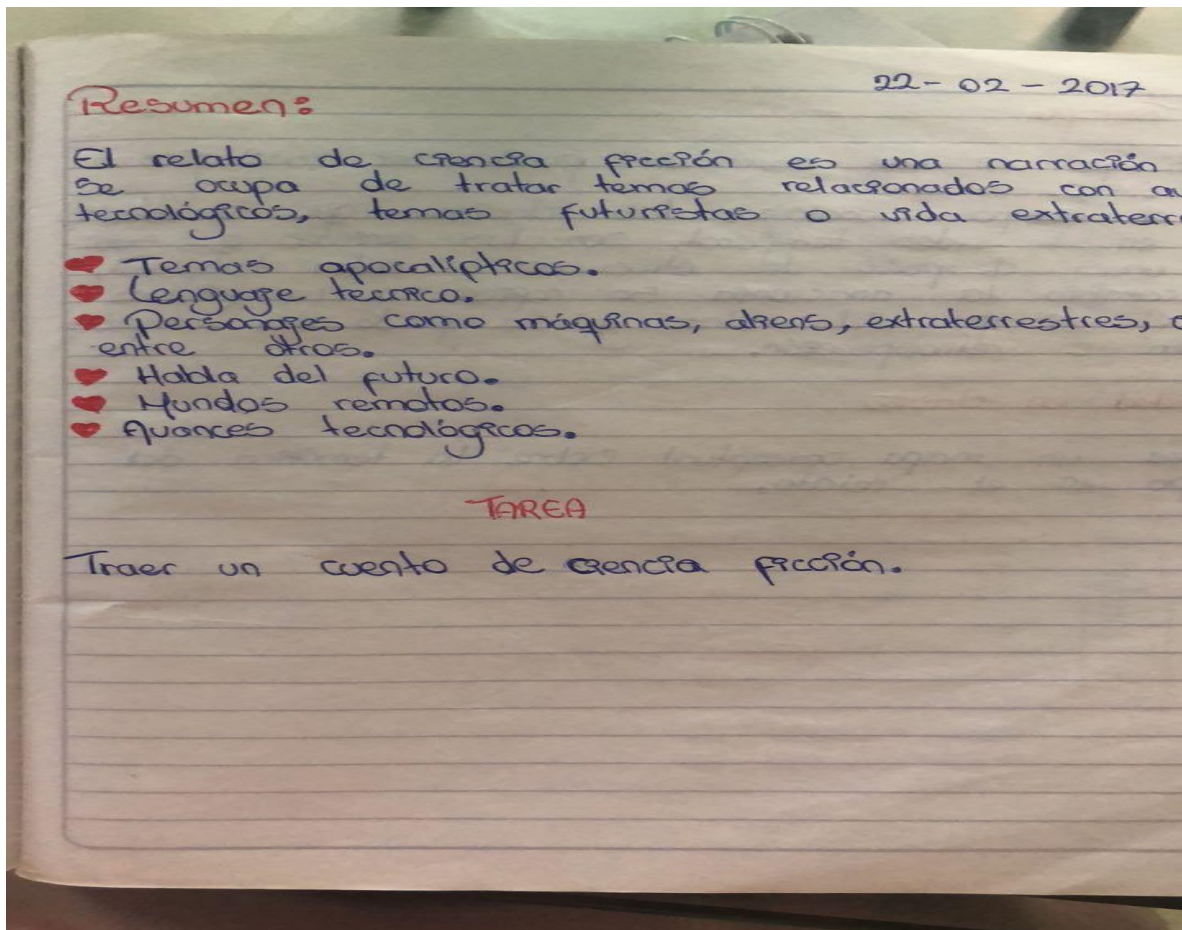 22-02-2017
Resumen:
El relato de ciencia ficción es una narración
se ocupa de tratar temas relacionados con
tecnológicos, temas futuristas o vida
Temas apocalípticos.
Lenguaje técnico.
Personajes como máquinas, aliens, extraterrestres,
entre otros.
Habla del futuro.
Mundos remotos.
Avances tecnológicos.
TAREA
Traer un cuento de ciencia ficción.